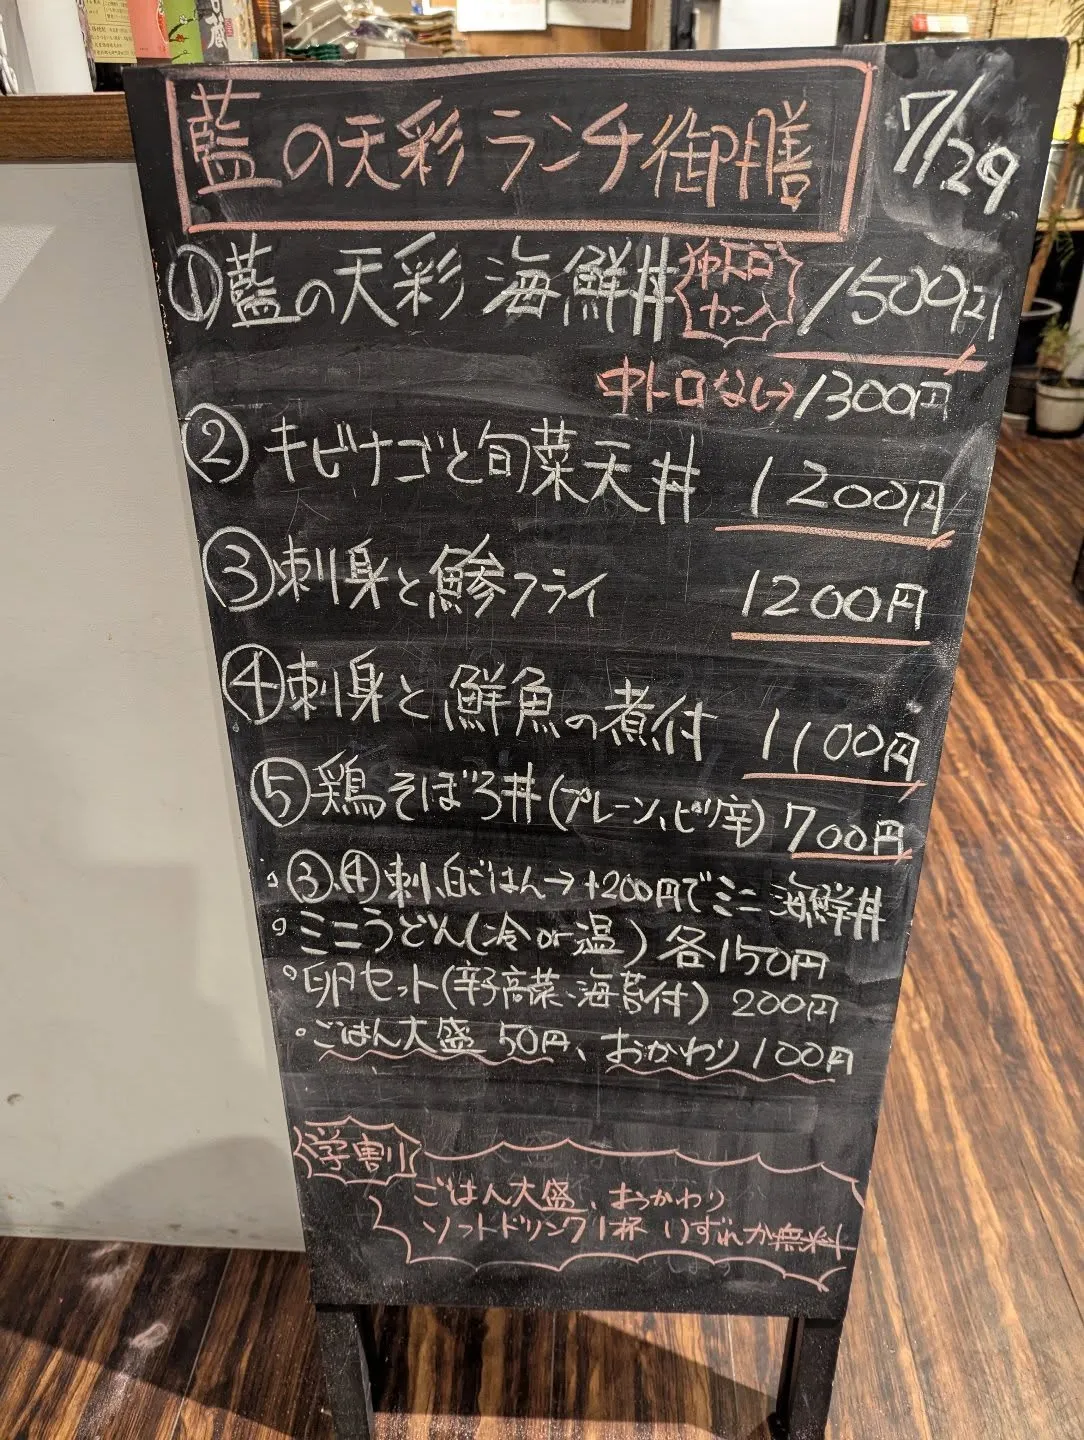 藍の天彩 ランチ御膳
7/29
①藍の天彩 海鮮丼 1500円
中トロなし→1300円
②キビナゴと旬菜天丼 1200円
③刺身と鯵フライ 1200円
④刺身と鮮魚の煮付 1100円
⑤鶏そぼろ丼(プレーン、ピリ辛) 700円
③、④刺、白ごはん→+200円でミニ海鮮丼
ミニうどん(冷or温) 各150円
卵セット(辛子高菜、海苔付) 200円
ごはん大盛 50円、おかわり100円
学割
ごはん大盛、おかわり
ソフトドリンク1杯 いずれか無料